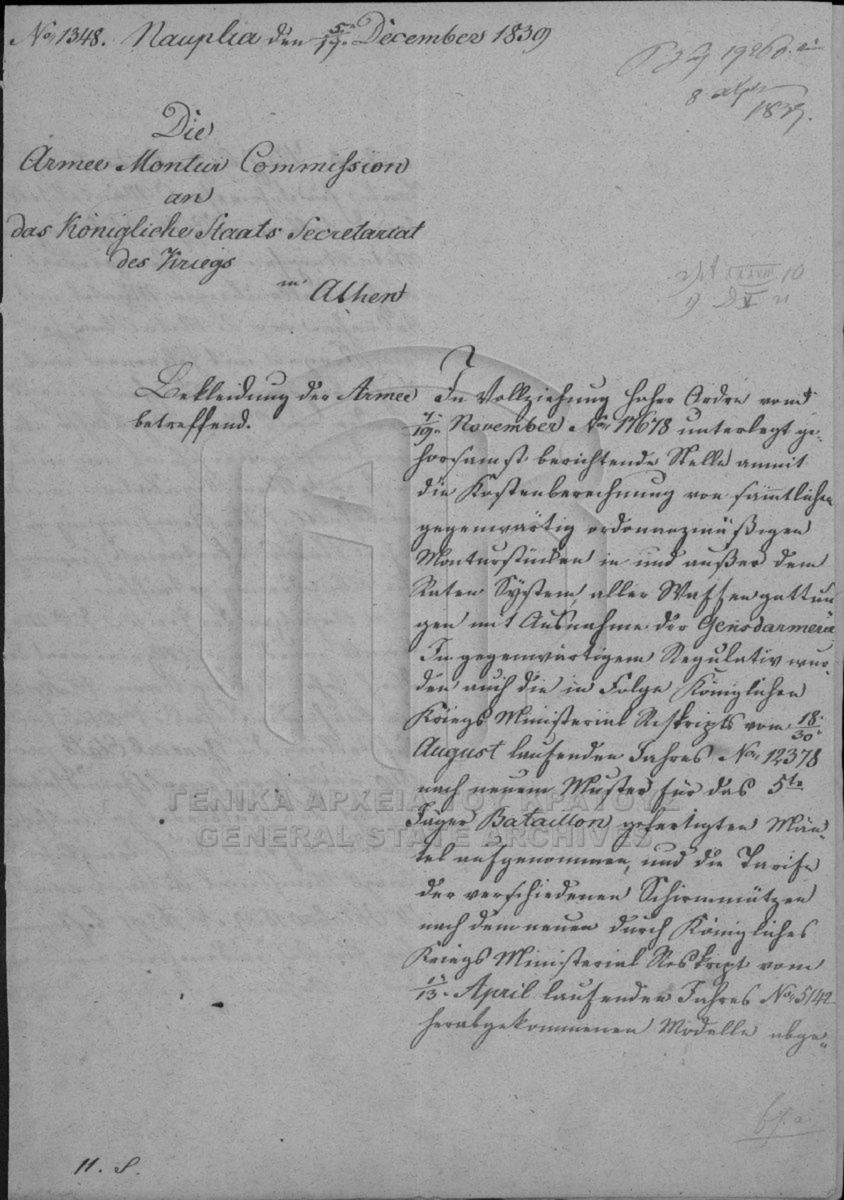 No. 1348. Nauplia den 5/17. December 1839
8
1839.
Die
Armee Montur Commission
an
das Königliche Staats Secretariat
des Kriegs
in Athen
Bekleidung der Armee
betreffend.
In Vollziehung hoher Ordre vom
7/19. November No. 17678 unterlegt ge-
horsamst berichtende Stelle anmit
die Kostenberechnung von sämmtlichen
gegenwärtig ordonanzmäßigen
Monturstücken in und außer dem
Raten System, aller Waffengattun
gen mit Ausnahme der Gensdarmerie
In gegenwärtigem Regulativ wur-
den auch die in Folge Königlichen
Kriegs Ministerial Reskripts vom 18./30.
August laufenden Jahres No. 12378
nach neuem Muster für das 5te
Jäger Bataillon gefertigten Män-
tel aufgenommen, und die Tarife
der verschiedenen Schirmmützen
nach dem neuen durch Königliches
Kriegs Ministerial Reskript vom
1/13. April laufenden Jahres No. 5142
herabgekommenen Modelle abge-
11. S.
ΓΕΝΙΚΑ ΑΡΧΕΙΑ ΤΟΥ ΚΡΑΤΟΥΣ
GENERAL STATE ARCHIVES